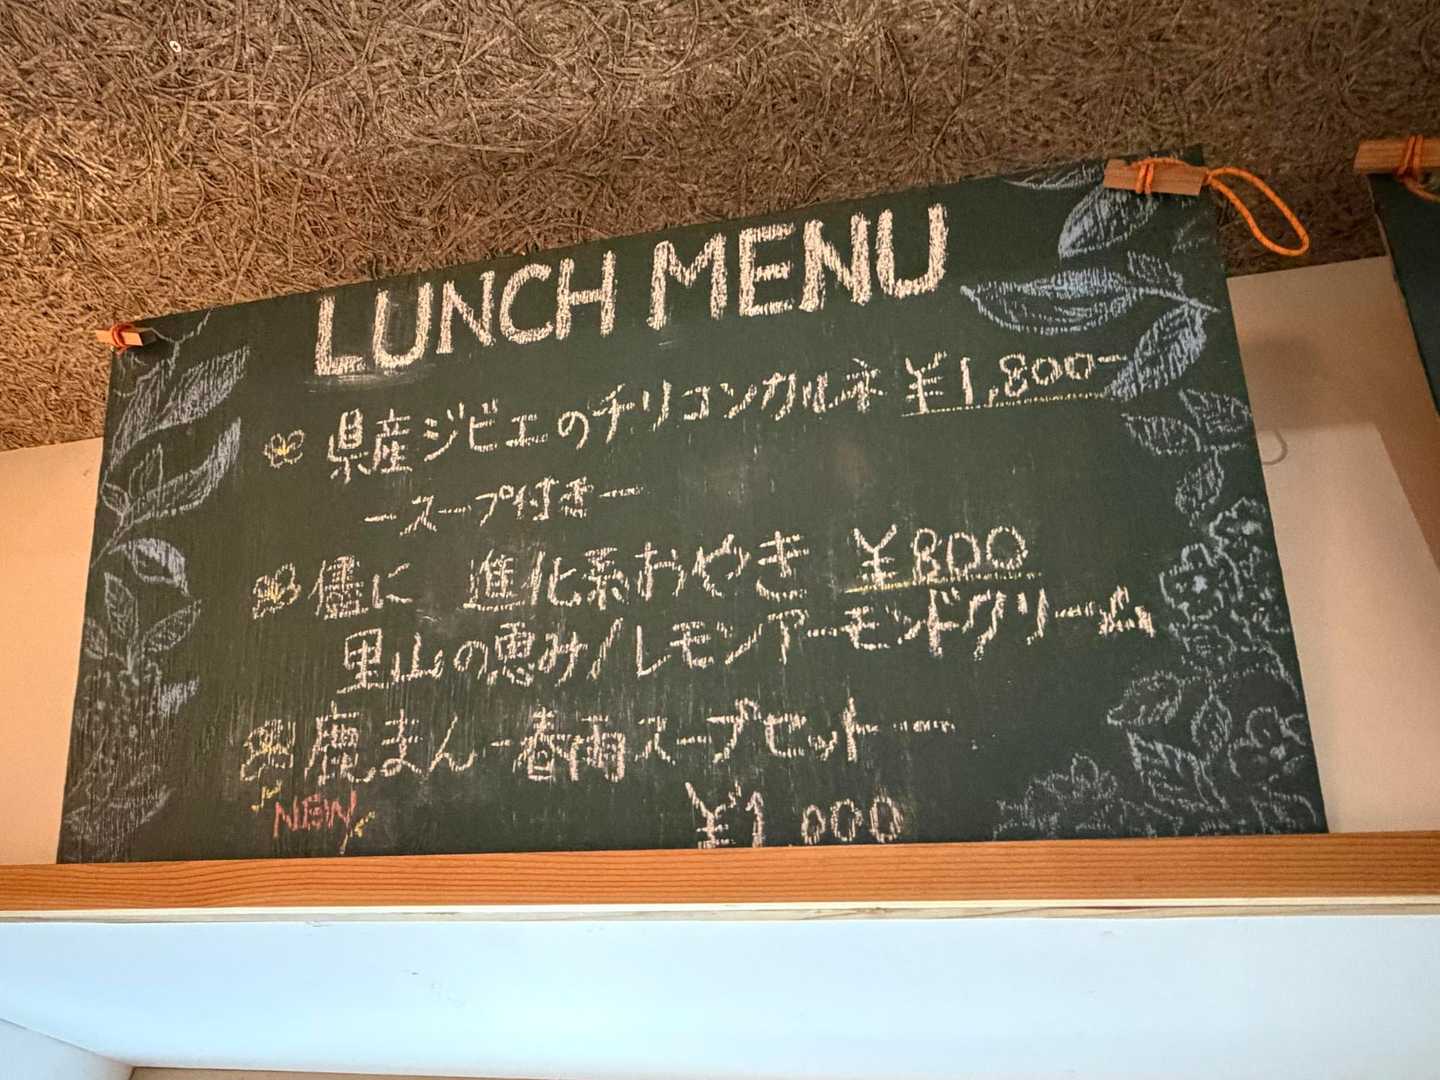 LUNCH MENU
県産ジビエのチリコンカルネ ¥1,800-
-スープ付き-
儘に 進化系おやき ¥800
里山の恵み/レモンアーモンドクリーム
鹿まん-春雨スープセット-
NEW
¥1,000